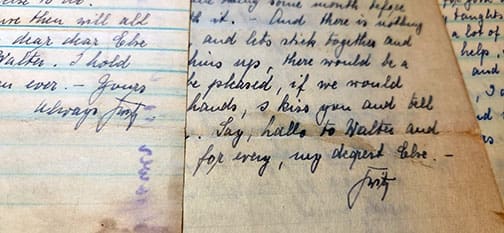 we then will all
dear dear Else
Walter. I hold
ever. – Yours
always Fritz
some month before
it. – And there is nothing
, and lets stick together and
ups, there would be a
be pleased, if we would
hands, s kiss you and tell
. Say, hallo to Walter and
for every, my degrest Else. –
Fritz
taught
a lot of
helps.
and